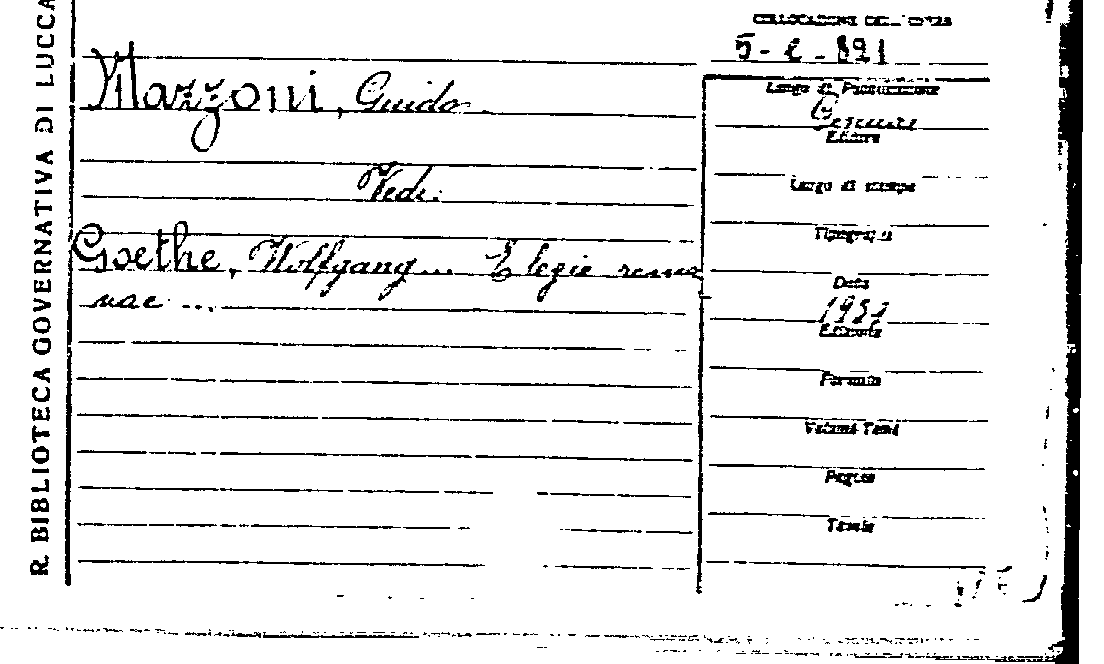 R. BIBLIOTECA GOVERNATIVA DI LUCCA
COLLOCAZIONE DELL'OPERA
Mazzoni, Guido
Vedi:
Goethe, Wolfgang... Elegie roma
nae ...
Luogo di Pubblicazione
Editore
Luogo di stampa
Tipografia
Data
Edizione
Formato
Volumi Tomi
Pagine
Tavole